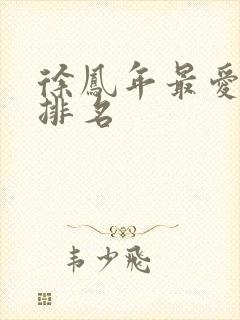 徐鳳年最愛
排名
韦少飛